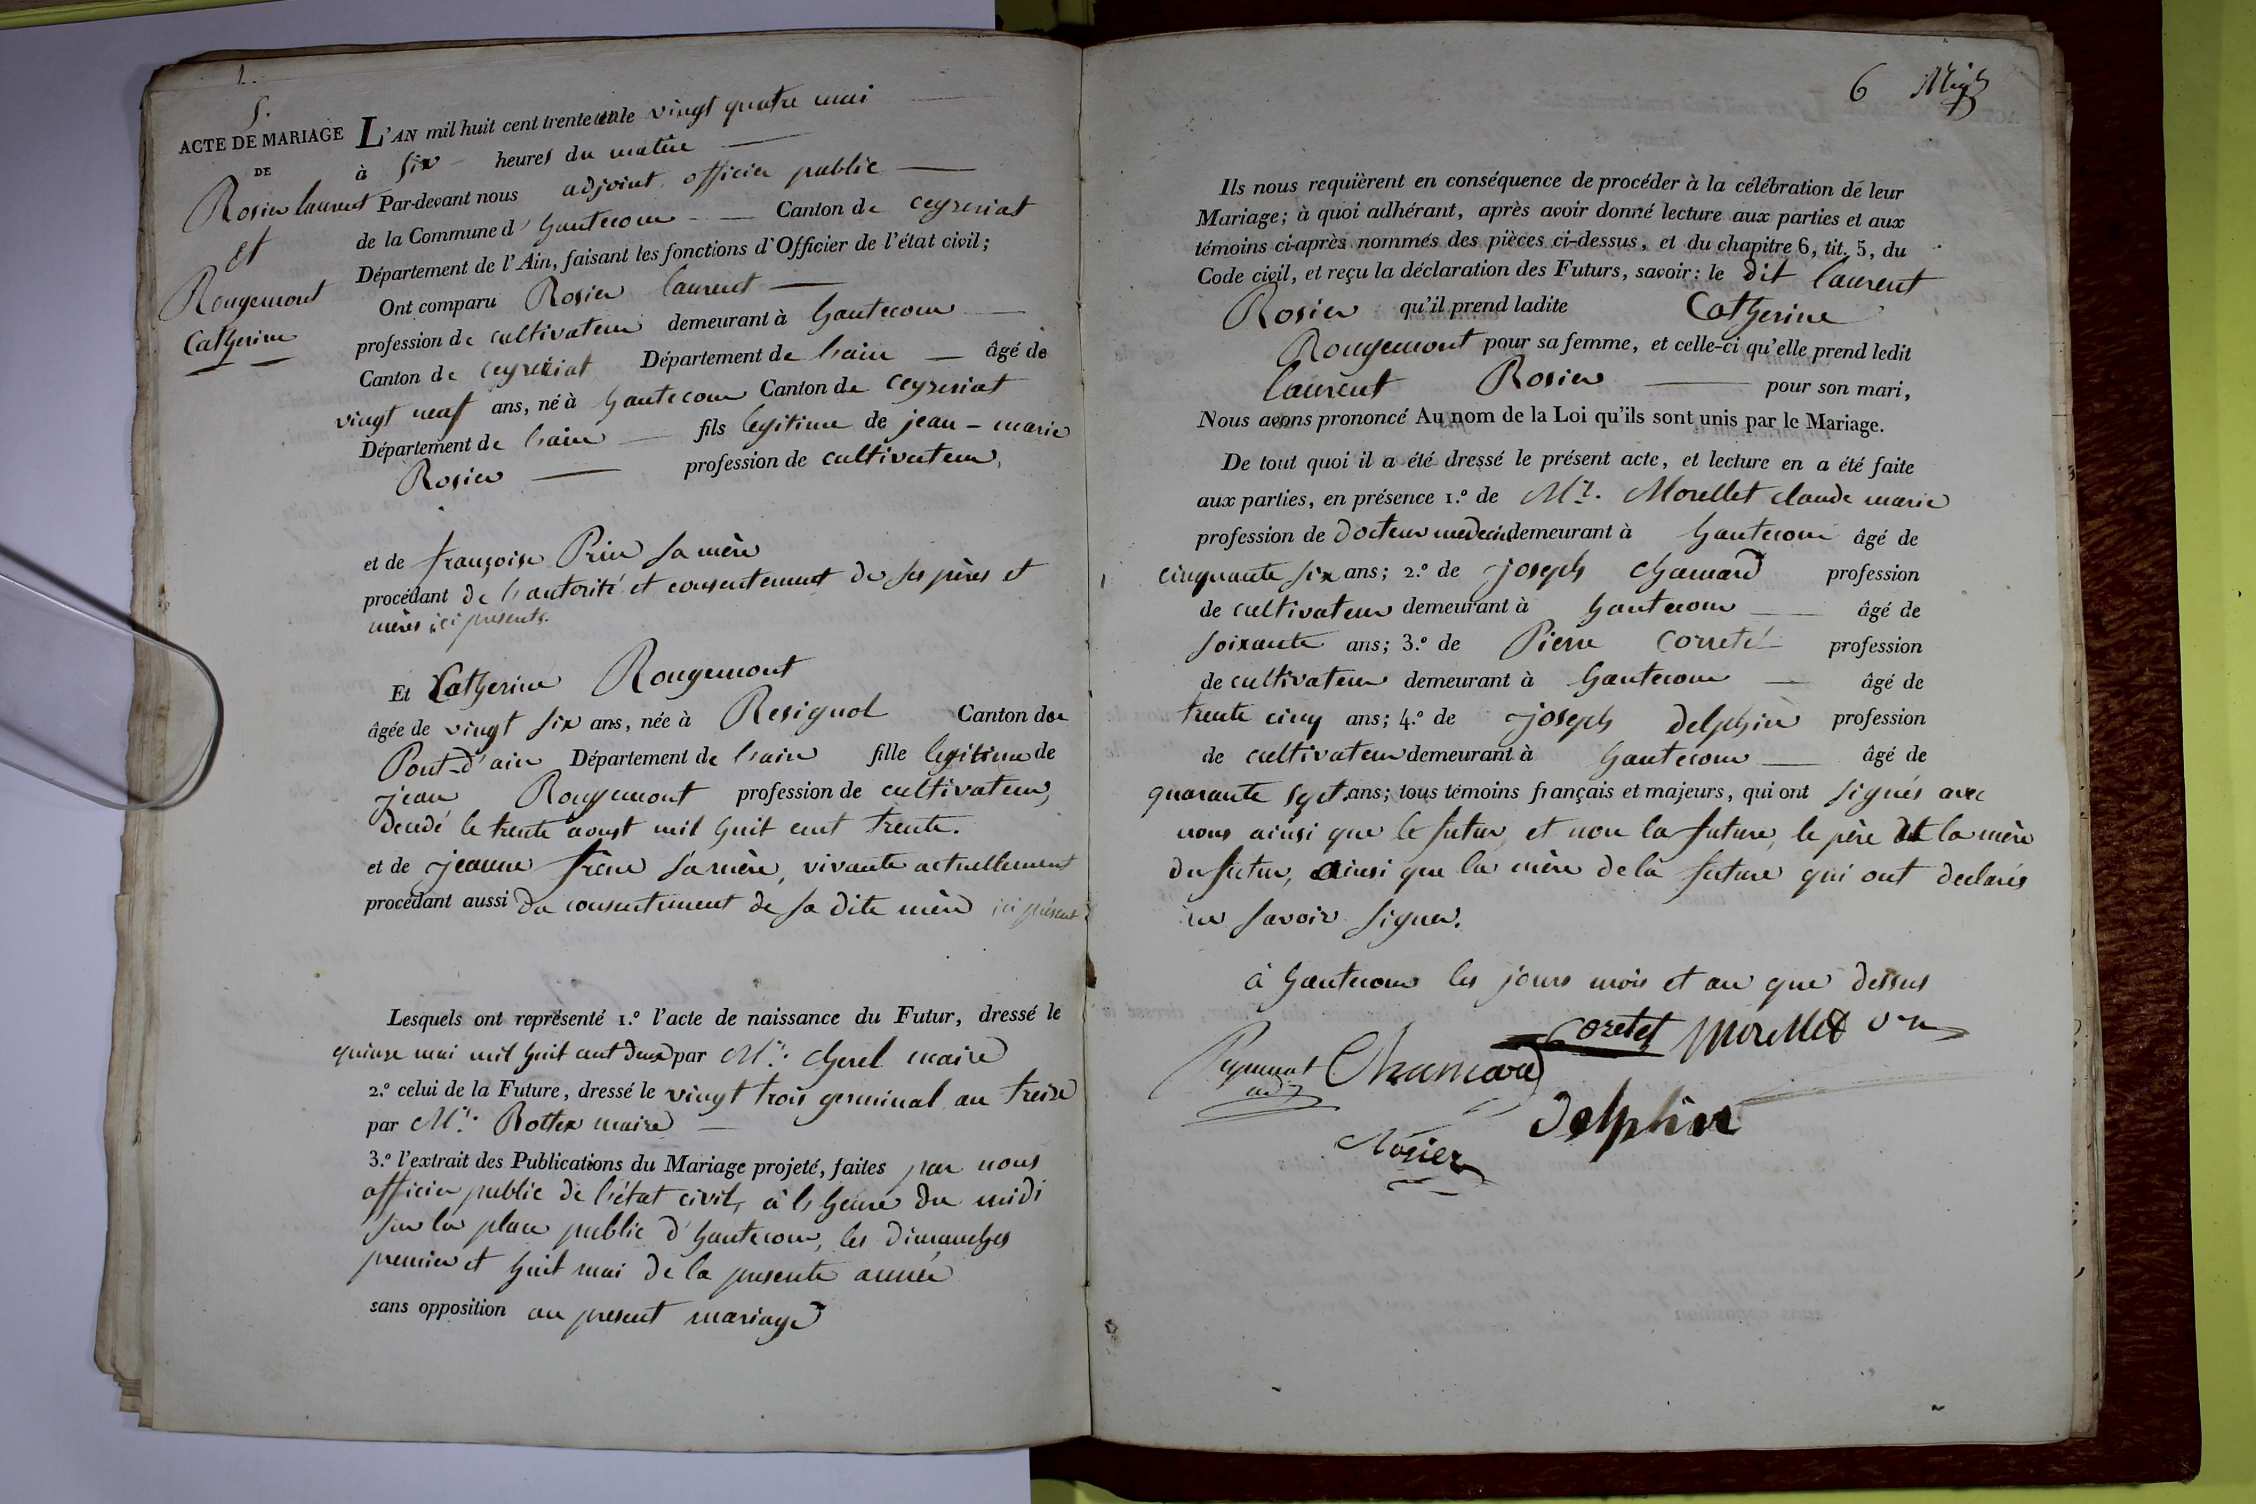 1.
5.
ACTE DE MARIAGE
DE
Rosier laurent
et
Rougemont
Catherine
L'AN mil huit cent trente un le vingt quatre mai
à six heures du matin
Par-devant nous adjoint officier public
de la Commune d'hautecour Canton de ceyzeriat
Département de l'Ain, faisant les fonctions d'Officier de l'état civil;
Ont comparu Rosier laurent
profession de cultivateur demeurant à hautecour
Canton de ceyzeriat Département de l'ain âgé de
vingt neuf ans, né à hautecour Canton de ceyzeriat
Département de l'ain fils legitime de jean-marie
Rosier profession de cultivateur,
et de françoise Prin sa mère
procédant de l'autorité et consentement de ses pères et
mères ici presents.
Et Catherine Rougemont
âgée de vingt six ans, née à Resignol Canton de
Pont-d'ain Département de l'ain fille legitime de
jean Rougemont profession de cultivateur,
decedé le trente aoust mil huit cent trente.
et de jeanne frène sa mère, vivante actuellement
procédant aussi du consentement de sa dite mère ici présente
Lesquels ont représenté 1.º l'acte de naissance du Futur, dressé le
quinze mai mil huit cent deux par Mr. cherel maire
2.º celui de la Future, dressé le vingt trois germinal an treize
par Mr. Bottex maire
3.º l'extrait des Publications du Mariage projeté, faites par nous
officier public de l'état civil, à l'heure du midi
sur la place public d'hautecour, les dimanches
premier et huit mai de la presente année
sans opposition au present mariage
6
Ils nous requièrent en conséquence de procéder à la célébration de leur
Mariage; à quoi adhérant, après avoir donné lecture aux parties et aux
témoins ci-après nommés des pièces ci-dessus, et du chapitre 6, tit. 5, du
Code civil, et reçu la déclaration des Futurs, savoir: le dit laurent
Rosier qu'il prend ladite Catherine
Rougemont pour sa femme, et celle-ci qu'elle prend ledit
laurent Rosier pour son mari,
Nous avons prononcé Au nom de la Loi qu'ils sont unis par le Mariage.
De tout quoi il a été dressé le présent acte, et lecture en a été faite
aux parties, en présence 1.º de Mr. Morellet claude marie
profession de docteur medecin demeurant à hautecour âgé de
cinquante six ans; 2.º de joseph chamard profession
de cultivateur demeurant à hautecour âgé de
soixante ans; 3.º de Pierre Correté profession
de cultivateur demeurant à hautecour âgé de
trente cinq ans; 4.º de joseph delphin profession
de cultivateur demeurant à hautecour âgé de
quarante sept ans; tous témoins français et majeurs, qui ont signés avec
nous ainsi que le futur, et non la future, le père et la mère
du futur, ainsi que la mère de la future qui ont declarés
ne savoir signer.
à hautecour les jours mois et an que dessus
Coretet Morellet
Chamard
delphin
Rosier